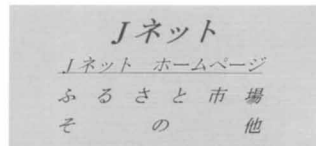 Jネット
Jネット ホームページ
ふるさと市場
その他